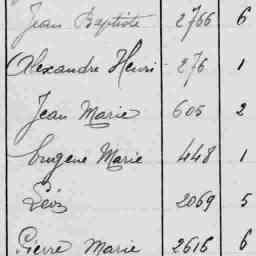 Jean Baptiste 2766 6
Alexandre Henri 276 1
Jean Marie 605 2
Eugène Marie 448 1
Léon 2069 5
Pierre Marie 2616 6